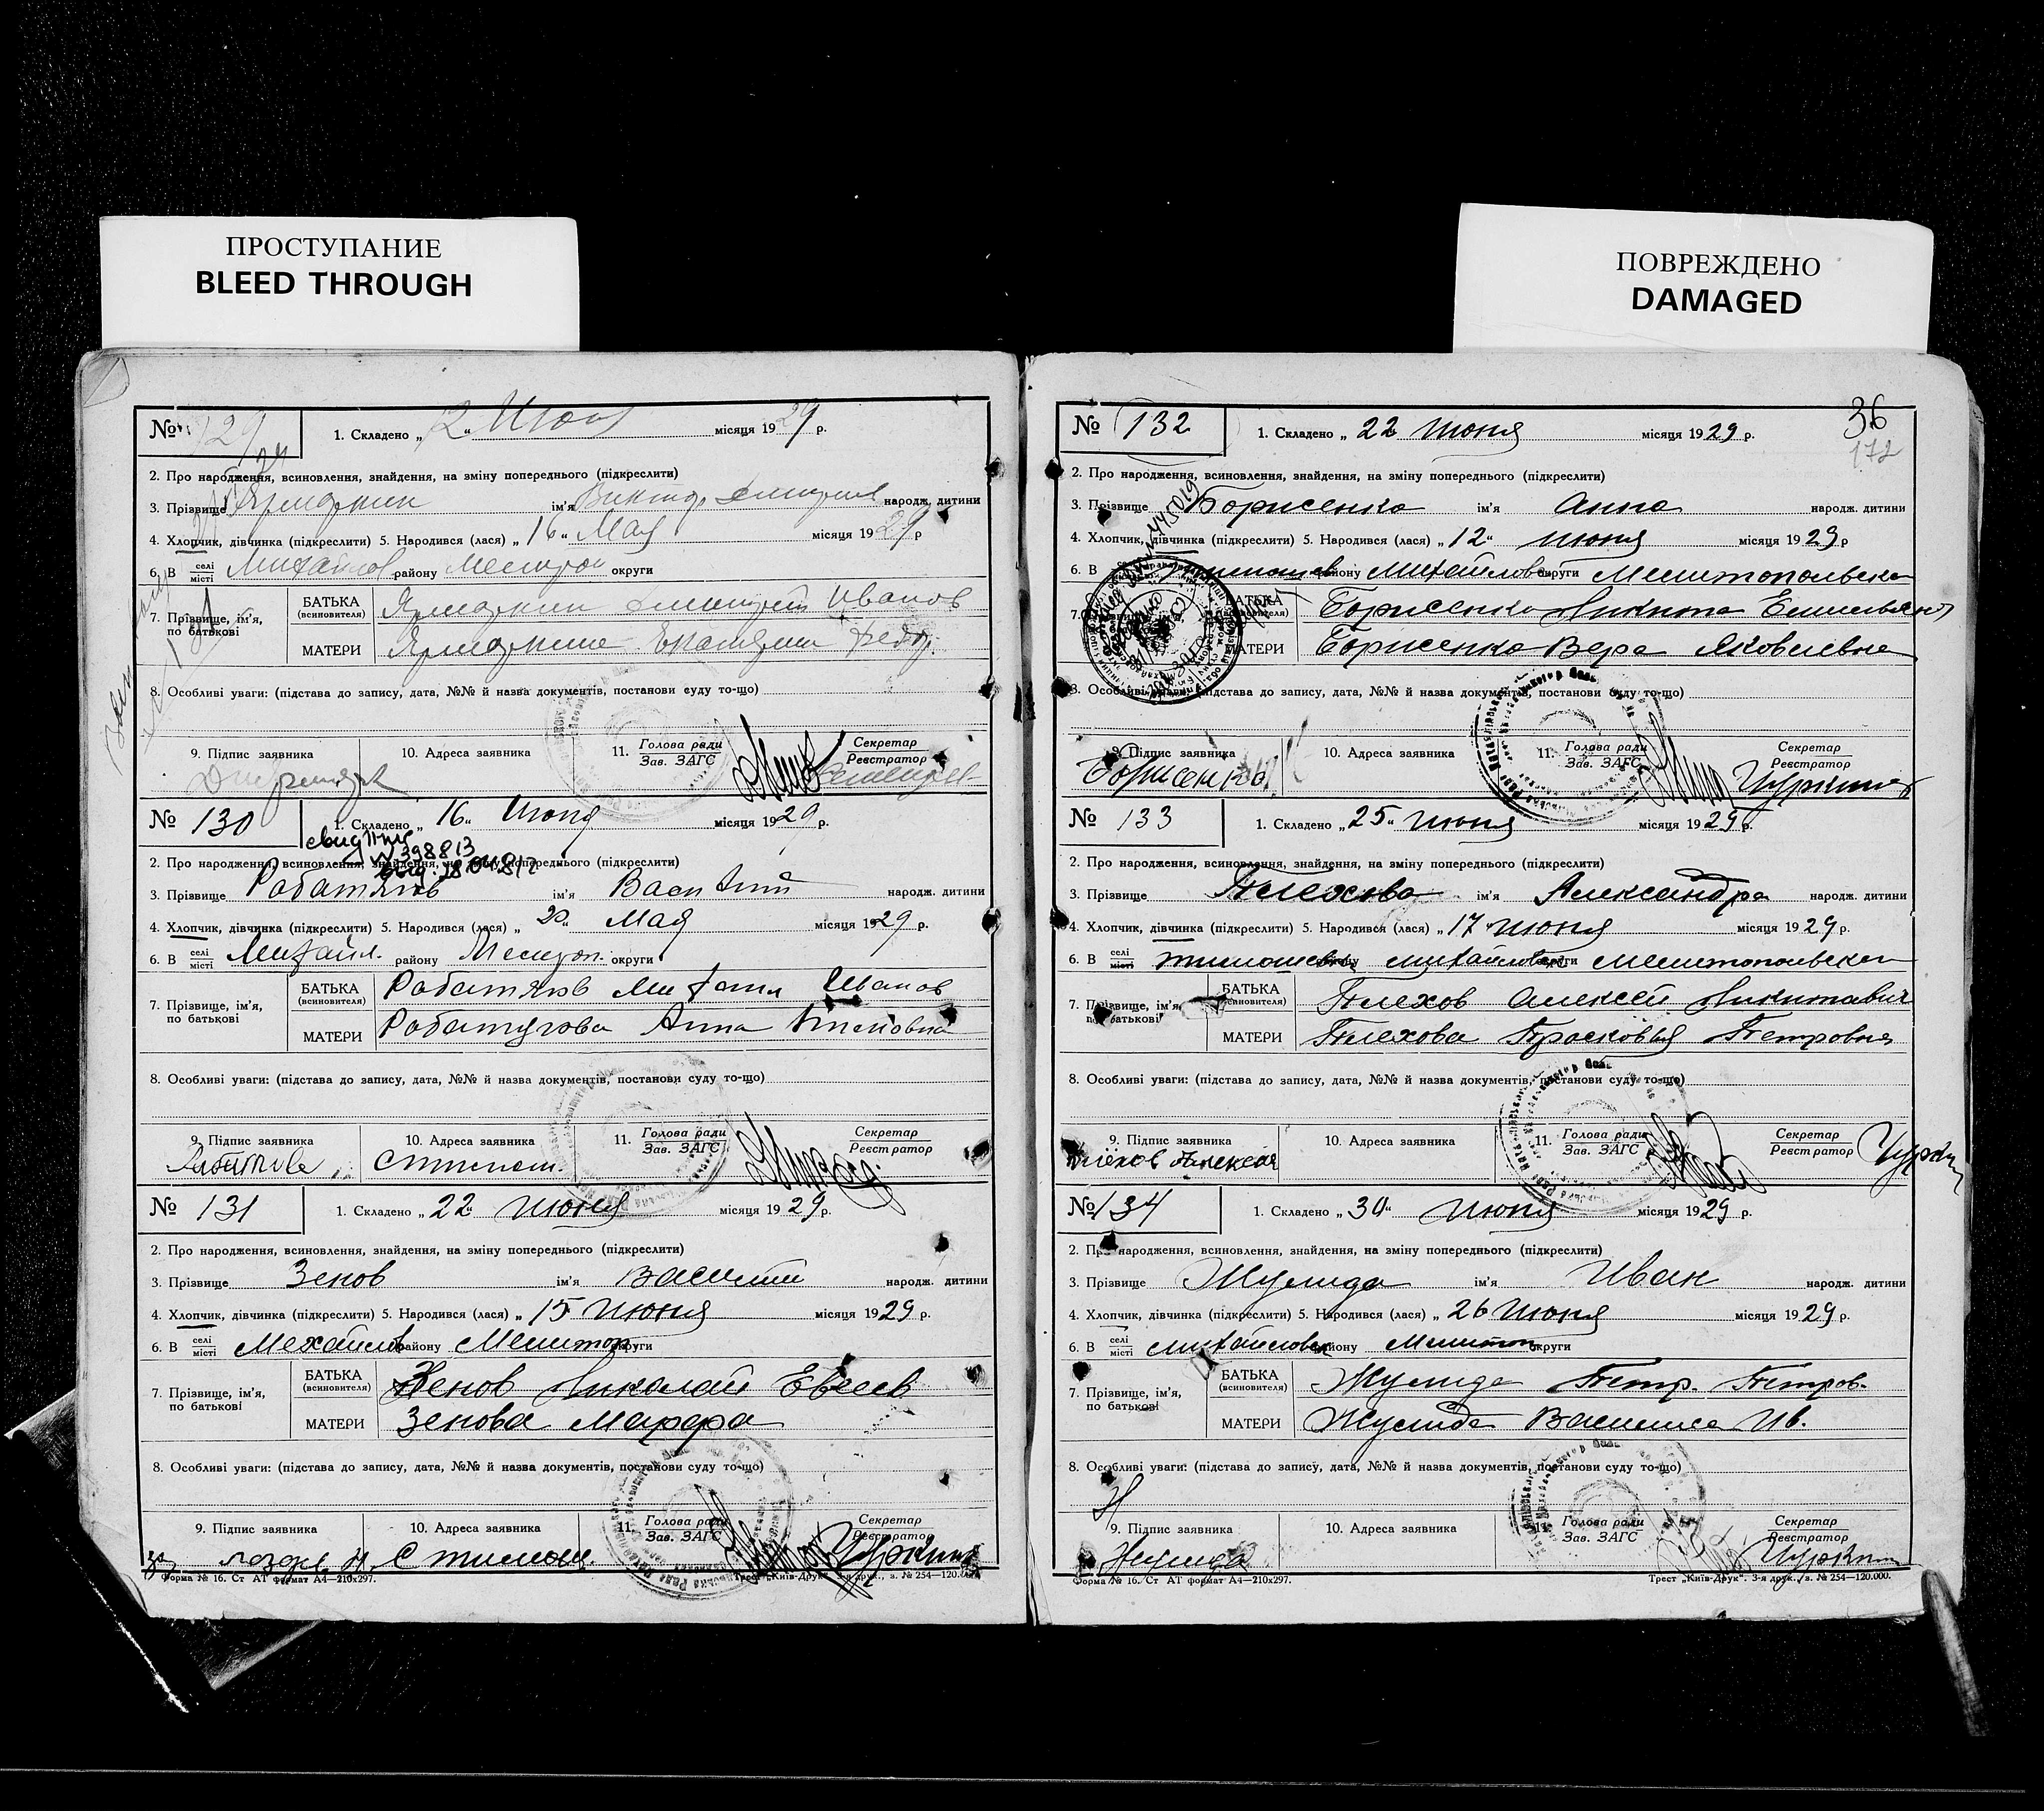 ПРОСТУПАНИЕ
BLEED THROUGH
ПОВРЕЖДЕНО
DAMAGED
№ 129
1. Складено „2“ місяця 1929 р.
2. Про народження, всиновлення, знайдення, на зміну попереднього (підкреслити)
3. Прізвище ім'я Виктор народж. дитини
4. Хлопчик, дівчинка (підкреслити) 5. Народився (лася) „16“ Мая місяця 1929 р
6. В селі місті Михайлов району Мелитоп округи
7. Прізвище, ім'я, по батькові
БАТЬКА (всиновителя) Иванов
МАТЕРИ Федор.
8. Особливі уваги: (підстава до запису, дата, №№ й назва документів, постанови суду то-що)
9. Підпис заявника 10. Адреса заявника 11. Голова ради Зав. ЗАГС Секретар Реєстратор
№ 130
1. Складено „16“ Июня місяця 1929 р.
свид
№ 398813
2. Про народження, всиновлення, знайдення, на зміну попереднього (підкреслити)
3. Прізвище ім'я Василий народж. дитини
4. Хлопчик, дівчинка (підкреслити) 5. Народився (лася) „20“ Мая місяця 1929 р.
6. В селі місті Михайл. району Мелитоп. округи
7. Прізвище, ім'я, по батькові
БАТЬКА (всиновителя) Иванов
МАТЕРИ Анна
8. Особливі уваги: (підстава до запису, дата, №№ й назва документів, постанови суду то-що)
9. Підпис заявника 10. Адреса заявника 11. Голова ради Зав. ЗАГС Секретар Реєстратор
№ 131
1. Складено „22“ июня місяця 1929 р.
2. Про народження, всиновлення, знайдення, на зміну попереднього (підкреслити)
3. Прізвище Зенов ім'я Василий народж. дитини
4. Хлопчик, дівчинка (підкреслити) 5. Народився (лася) „15 июня місяця 1929 р.
6. В селі місті Мехайлов району Мелитоп округи
7. Прізвище, ім'я, по батькові
БАТЬКА (всиновителя) Зенов Николай Евсеев
МАТЕРИ Зенова Марфа
8. Особливі уваги: (підстава до запису, дата, №№ й назва документів, постанови суду то-що)
9. Підпис заявника 10. Адреса заявника 11. Голова ради Зав. ЗАГС Секретар Реєстратор
Чуркин
Форма № 16. Ст АТ формат А4—210х297. Трест „Київ-Друк“ 3-я друк., з. № 254—120.000.
36
172
№ 132
1. Складено „22 июня місяця 1929 р.
2. Про народження, всиновлення, знайдення, на зміну попереднього (підкреслити)
3. Прізвище Борисенко ім'я Анна народж. дитини
4. Хлопчик, дівчинка (підкреслити) 5. Народився (лася) „12“ июня місяця 1929 р
6. В району Михайловск округи Мелитопольска
БАТЬКА (всиновителя) Борисенко Никита Емельянов
МАТЕРИ Борисенко Вера Яковлевна
8. Особливі уваги: (підстава до запису, дата, №№ й назва документів, постанови суду то-що)
9. Підпис заявника 10. Адреса заявника 11. Голова ради Зав. ЗАГС Секретар Реєстратор
Борисенко Чуркин
№ 133
1. Складено „25“ июня місяця 1929 р.
2. Про народження, всиновлення, знайдення, на зміну попереднього (підкреслити)
3. Прізвище Плехова ім'я Александра народж. дитини
4. Хлопчик, дівчинка (підкреслити) 5. Народився (лася) „17 июня місяця 1929 р.
6. В селі місті Тимошевка Михайловск округи Мелитопольска
7. Прізвище, ім'я, по батькові
БАТЬКА (всиновителя) Плехов Алексей Никитавич
МАТЕРИ Плехова Прасковья Петровна
8. Особливі уваги: (підстава до запису, дата, №№ й назва документів, постанови суду то-що)
9. Підпис заявника 10. Адреса заявника 11. Голова ради Зав. ЗАГС Секретар Реєстратор
Плехов Алексей Чуркин
№ 134
1. Складено „30“ июня місяця 1929 р.
2. Про народження, всиновлення, знайдення, на зміну попереднього (підкреслити)
3. Прізвище Жулида ім'я Иван народж. дитини
4. Хлопчик, дівчинка (підкреслити) 5. Народився (лася) „26 июня місяця 1929 р.
6. В селі місті Михайловка району Мелитоп округи
7. Прізвище, ім'я, по батькові
БАТЬКА (всиновителя) Жулида Петр. Петров.
МАТЕРИ Жулида Василиса Ив.
8. Особливі уваги: (підстава до запису, дата, №№ й назва документів, постанови суду то-що)
9. Підпис заявника 10. Адреса заявника 11. Голова ради Зав. ЗАГС Секретар Реєстратор
Жулида Чуркин
Форма № 16. Ст АТ формат А4—210х297. Трест „Київ-Друк“. 3-я друк., з. № 254—120.000.